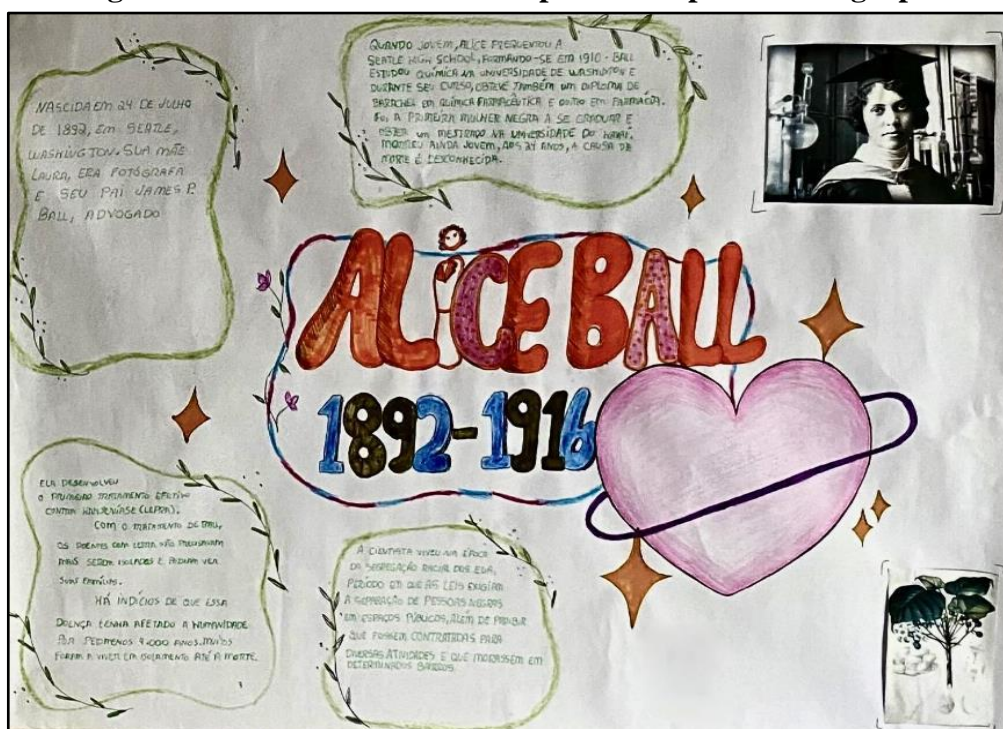 NASCIDA EM 24 DE JULHO
DE 1892, EM SEATLE,
WASHINGTON. SUA MÃE
LAURA, ERA FOTÓGRAFA
E SEU PAI JAMES P.
BALL, ADVOGADO
QUANDO JOVEM, ALICE FREQUENTOU A
SEATLE HIGH SCHOOL, FORMANDO-SE EM 1910. BALL
ESTUDOU QUÍMICA NA UNIVERSIDADE DE WASHINGTON E
DURANTE SEU CURSO, OBTEVE TAMBÉM UM DIPLOMA DE
BARACHEL EM QUÍMICA FARMACÊUTICA E OUTRO EM FARMÁCIA.
FOI A PRIMEIRA MULHER NEGRA A SE GRADUAR E
OBTER UM MESTRADO NA UNIVERSIDADE DO HAVAÍ.
MORREU AINDA JOVEM, AOS 24 ANOS, A CAUSA DE
MORTE É DESCONHECIDA.
ALICE BALL
1892-1916
ELA DESENVOLVEU
O PRIMEIRO TRATAMENTO EFETIVO
CONTRA HANSENÍASE (LEPRA).
COM O TRATAMENTO DE BALL,
OS DOENTES COM LEPRA NÃO PRECISAVAM
MAIS SEREM ISOLADOS E PODIAM VER
SUAS FAMÍLIAS.
HÁ INDÍCIOS DE QUE ESSA
DOENÇA TENHA AFETADO A HUMANIDADE
POR PELOMENOS 4.000 ANOS. MUITOS
FORAM A VIVER EM ISOLAMENTO ATÉ A MORTE.
A CIENTISTA VIVEU NA ÉPOCA
DA SEGREGAÇÃO RACIAL DOS EUA,
PERÍODO EM QUE AS LEIS EXIGIAM
A SEPARAÇÃO DE PESSOAS NEGRAS
EM ESPAÇOS PÚBLICOS, ALÉM DE PROIBIR
QUE FOSSEM CONTRATADAS PARA
DIVERSAS ATIVIDADES E QUE MORASSEM EM
DETERMINADOS BAIRROS.